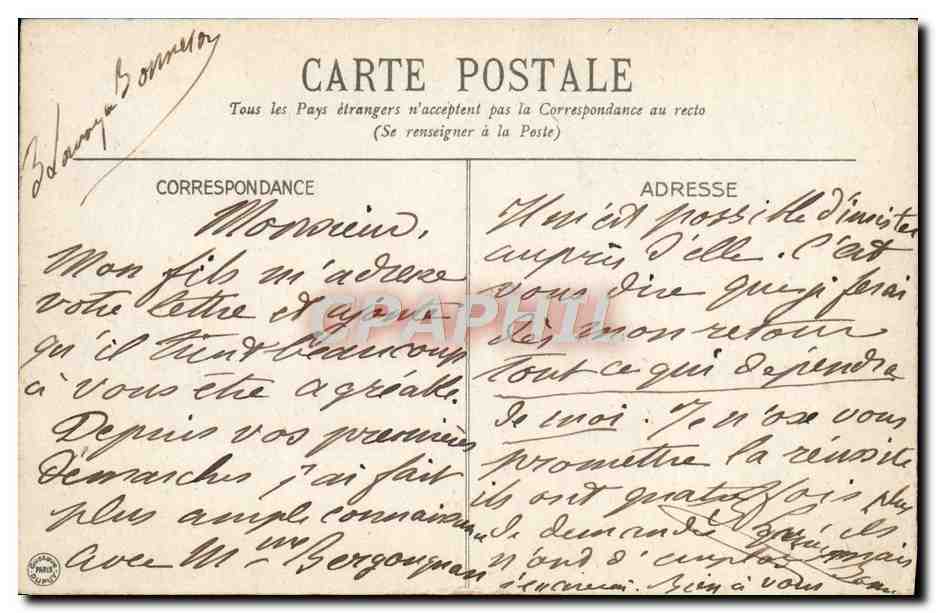 CARTE POSTALE
Tous les Pays étrangers n'acceptent pas la Correspondance au recto
(Se renseigner à la Poste)
CORRESPONDANCE
Monsieur,
Mon fils m'adresse
votre lettre et ajoute
qu'il tient beaucoup
à vous être agréable.
Depuis vos premières
démarches j'ai fait
plus ample connaissance
avec Mme Bergougnan
ADRESSE
Il m'est possible d'insister
auprès d'elle. C'est
vous dire que je ferai
dès mon retour
tout ce qui dépendra
de moi. Je n'ose vous
promettre la réussite
ils ont quatre fois plus
de demandes
n'ont d'emplois
Bien à vous
CPAPHIL
PARIS